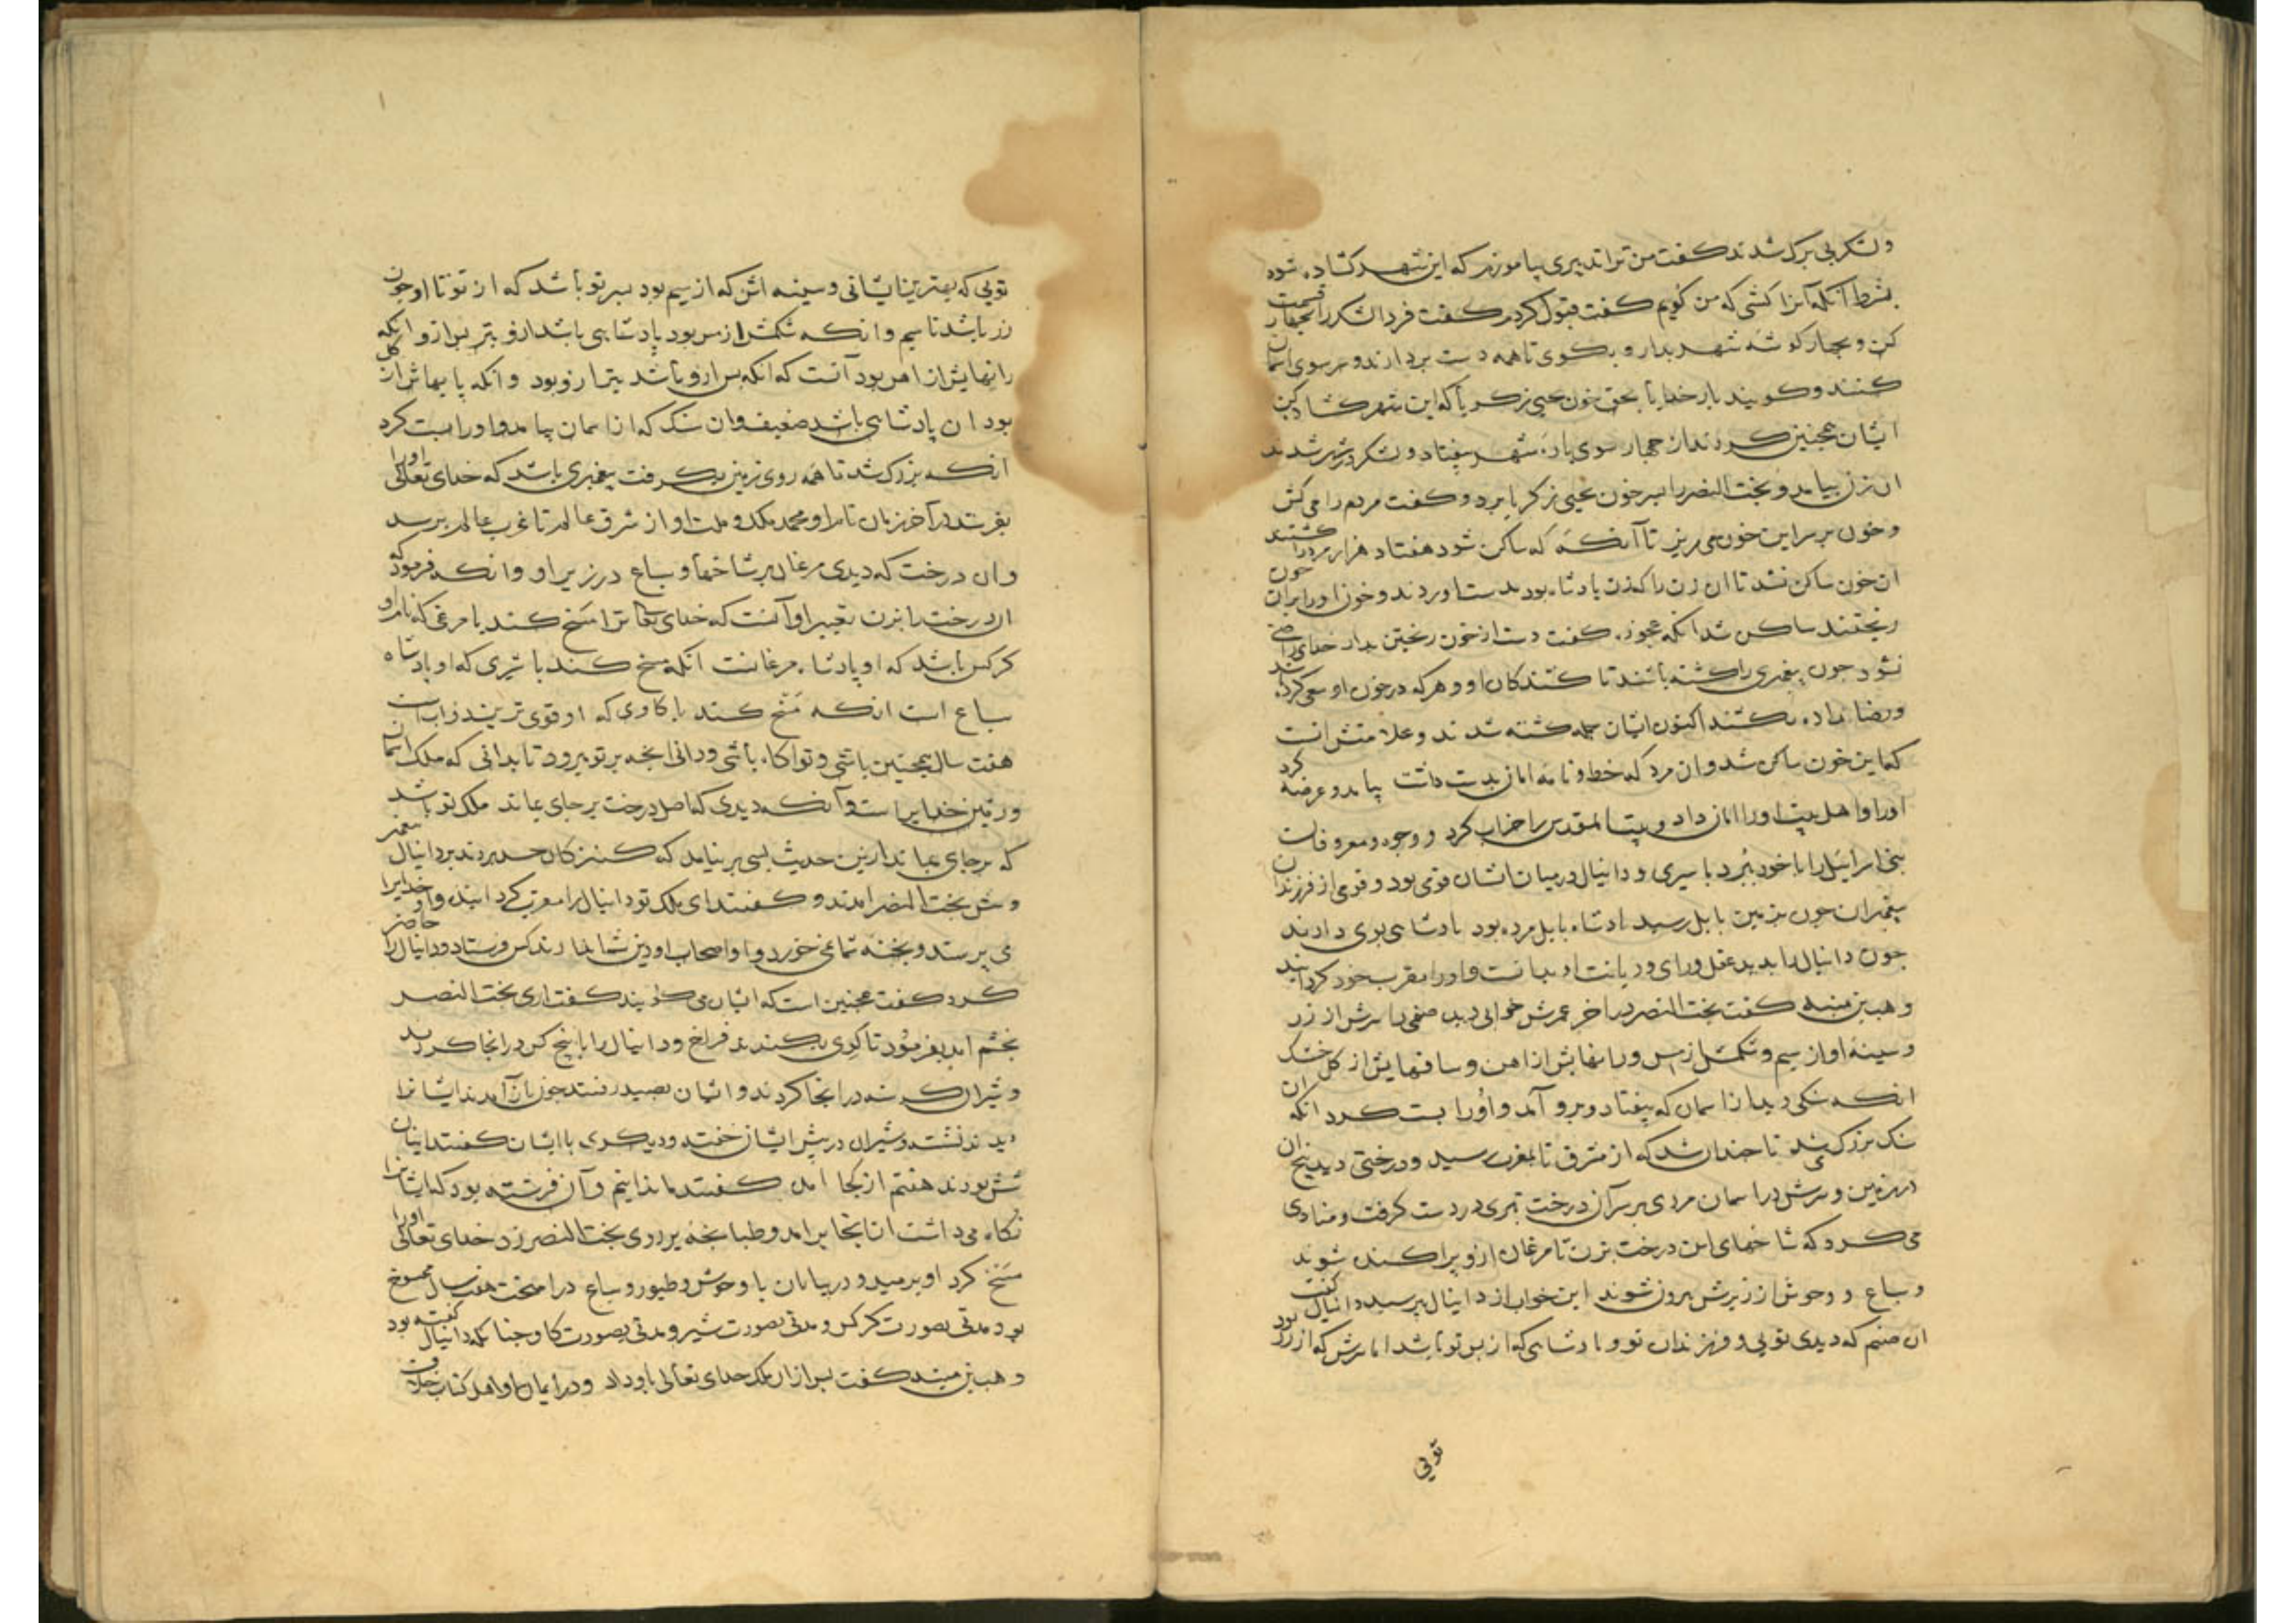 ولشکر بی برک شدند کفت من ترا تدبیری بیاموزم که این شهر کشاده شود
بشرط آنکه آنرا کشی که من کویم کفت قبول کردم کفت فردا لشکر را بچهار قسمت
کن و بچهار کوشه شهر بدار و بکوی تا همه دست بردارند و سر سوی اسمان
کنند و کویند بار خدایا بحق خون یحیی زکریا که این شهر کشاده کن
ایشان همچنین کردند از چهار سوی باره شهر بیفتاد و لشکر در شهر شدند
ان زن بیامد و بخت النصر را بسر خون یحیی زکریا برد و کفت مردم را می کش
و خون بر سر این خون می ریز تا آنکه که ساکن شود هفتاد هزار مرد را کشتند
ان خون ساکن نشد تا ان زن را که زن پادشاه بود بدست اوردند و خون او را بران خون
ریختند ساکن شد انکه عجوزه کفت دست از خون ریختن بدار خدای راضی
نشود چون پیغمبری را کشته باشند تا کشندکان او و هر که در خون او سعی کرده
ورضا داده بکشند اکنون ایشان جمله کشته شدند و علامتش انست
که این خون ساکن شد و ان مرد که خط و نامه امان بدست داشت بیامد و عرضه کرد
او را و اهل بیت او را امان داد و بیت المقدس را خراب کرد و وجوه و معروفان
بنی اسرایل را با خود ببرد باسیری و دانیال در میان ایشان بود و قومی از فرزندان
پیغمبران چون بزمین بابل رسید پادشاه بابل مرده بود پادشاهی بوی دادند
چون دانیال را بدید عقل و رای و دیانت او بدانست و او را مقرب خود کردانید
وهب بن منبه کفت بخت النصر در اخر عمرش خوابی دید صنمی را سرش از زر
و سینه او از سیم و شکمش از مس و رانهایش از اهن و ساقهایش از کل خشک
انکه سنکی دید از اسمان که بیفتاد و برو آمد و او را پست کرد انکه ان
سنک بزرک می شد تا چندان شد که از مشرق تا بمغرب رسید و درختی دید بیخ ان
در زمین و سرش در اسمان مردی بر سر آن درخت تبری در دست کرفت و منادی
می کرد که شاخهای این درخت بزن تا مرغان ازو پراکنده شوند
و سباع و وحوش از زیرش بیرون شوند این خواب از دانیال بپرسید دانیال کفت
ان صنم که دیدی تویی و فرزندان تو و پادشاهی که از پس تو باشد اما سرش که از زر بود
تویی
تویی که بهترین ایشانی و سینه اش که از سیم بود پسر تو باشد که از تو تا او چون
زر باشد تا سیم و انکه شکمش از مس بود پادشاهی باشد ازو بتر پس ازو و انکه
رانهایش از اهن بود آنست که انکه پس ازو باشد بتر ازو بود و انکه پایهاش از کل
بود ان پادشاهی باشد ضعیف و ان سنک که از اسمان بیامد و او را پست کرد
انکه بزرک شد تا همه روی زمین بکرفت پیغمبری باشد که خدای تعالی او را
بفرستد در آخر زمان نام او محمد ملک و ملت او از شرق عالم تا غرب عالم برسد
وان درخت که دیدی مرغان بر شاخها و سباع در زیر او وانکه فرمود که
ان درخت را بزن تعبیر او آنست که خدای تعالی ترا مسخ کند با مرغی که نام او
کرکس باشد که او پادشاه مرغانست انکه مسخ کند با شیری که او پادشاه
سباع است انکه مسخ کند با کاوی که او قوی ترین دواب است
هفت سال همچنین باشی و تو اکاه باشی و دانی انچه بر تو میرود تا بدانی که ملک اسمان
و زمین خدایراست و آنکه دیدی که اصل درخت بر جای بماند ملک تو باشد
که بر جای بماند ازین حدیث بسی بر نیامد که حسد بردند بر دانیال پیغمبر
و پیش بخت النصر امدند و کفتند ای ملک تو دانیال را مقرب کردانیدی و او خدایرا
می پرستد و پخته شما نمی خورد و او و اصحاب او دین شما ندارند کس فرستاد و دانیال را حاضر
کرد کفت همچنین است که ایشان می کویند کفت اری بخت النصر
بخشم امد بفرمود تا کوی بکندند فراخ و دانیال را با پنج کس در انجا کردند
و شیران کرسنه در انجا کردند و ایشان بصید رفتند چون باز آمدند ایشانرا
دیدند نشسته و شیران در پیش ایشان خفته و دیکری با ایشان کفتند اینان
شش بودند هفتم از کجا امد کفتند ما ندانیم و آن فرشته بود که ایشانرا
نکاه می داشت از انجا برامد و طبانچه بر روی بخت النصر زد خدای تعالی او را
مسخ کرد او برمید و در بیابان با وحوش و طیور و سباع درامیخت هفت سال ممسوخ
بود مدتی بصورت کرکس و مدتی بصورت شیر و مدتی بصورت کاو چنانکه دانیال کفته بود
وهب بن منبه کفت پس از ان ملک خدای تعالی باو داد و در ایمان او اهل کتاب خلاف